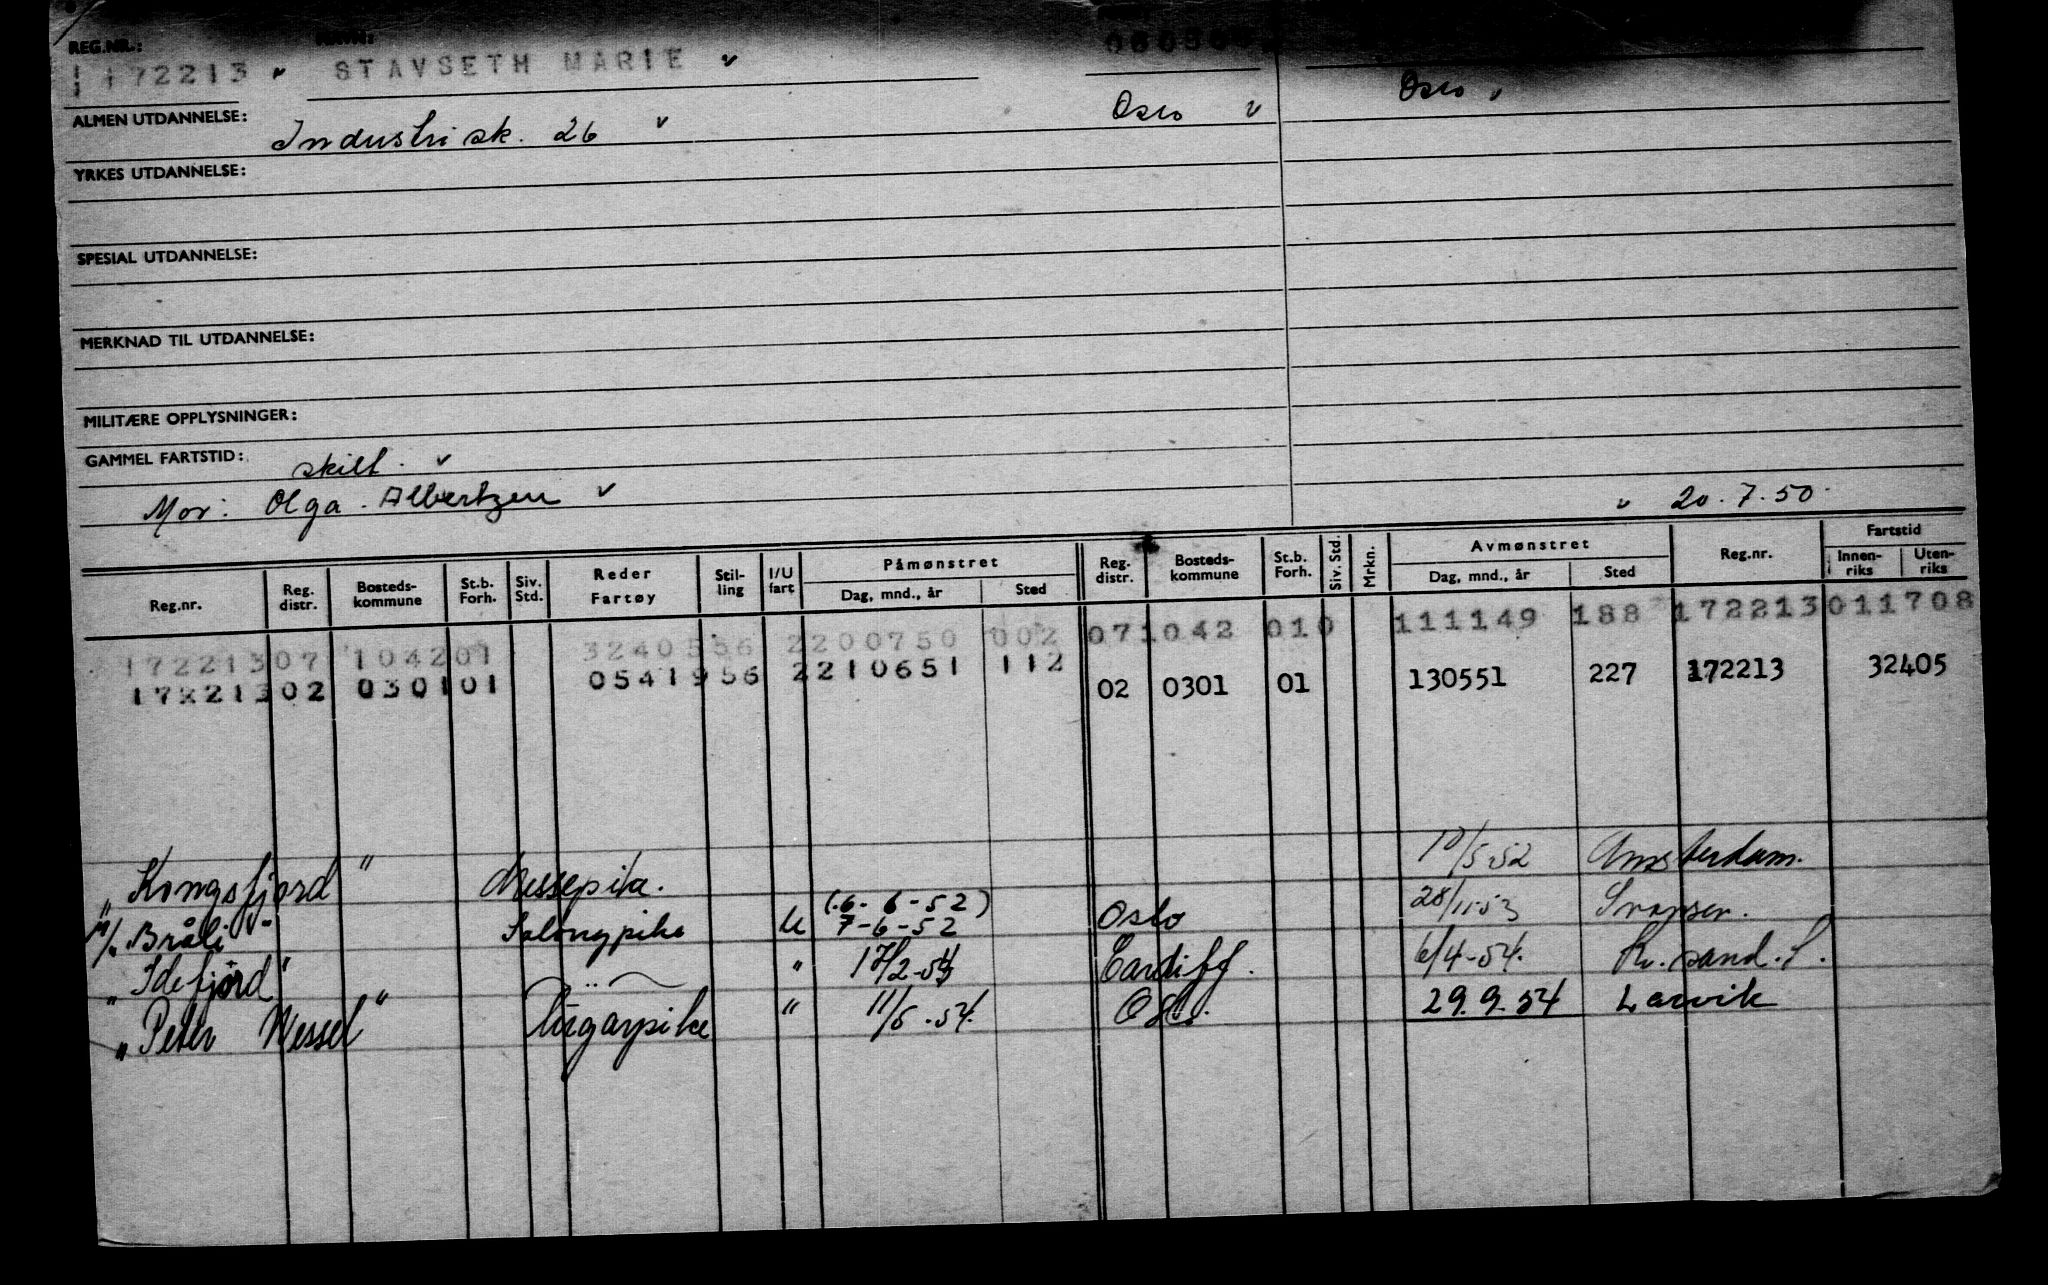 REG.NR.: NAVN:
172213 STAVSETH MARIE
ALMEN UTDANNELSE: Industrisk. 26 Oslo Oslo
YRKES UTDANNELSE:
SPESIAL UTDANNELSE:
MERKNAD TIL UTDANNELSE:
MILITÆRE OPPLYSNINGER:
GAMMEL FARTSTID: skilt.
Mor: Olga Albertzen 20.7.50.
Reg.nr. Reg. distr. Bosteds-kommune St.b. Forh. Siv. Std. Reder Fartøy Stil-ling I/U fart Påmønstret Dag, mnd., år Sted Reg. distr. Bosteds-kommune St.b. Forh. Siv. Std. Mrkn. Avmønstret Dag, mnd., år Sted Reg.nr. Fartstid Innen-riks Uten-riks
071042 010 111149 188 172213 011708
17221307 104201 3240556 2200750 002
17221302 030101 0541956 2210651 112 02 0301 01 130551 227 172213 32405
" Kongsfjord " Messepike. 10/5 52 Amsterdam.
(.6-6-52)
M/S. Bråli " Salongpike U 7-6-52 Oslo 28/11-53
" Idefjord " " 17/2-54 Cardiff. 6/4-54. Kr.sand.S.
" Peter Wessel " Lugarpike " 11/5.54. Oslo. 29.9.54 Larvik